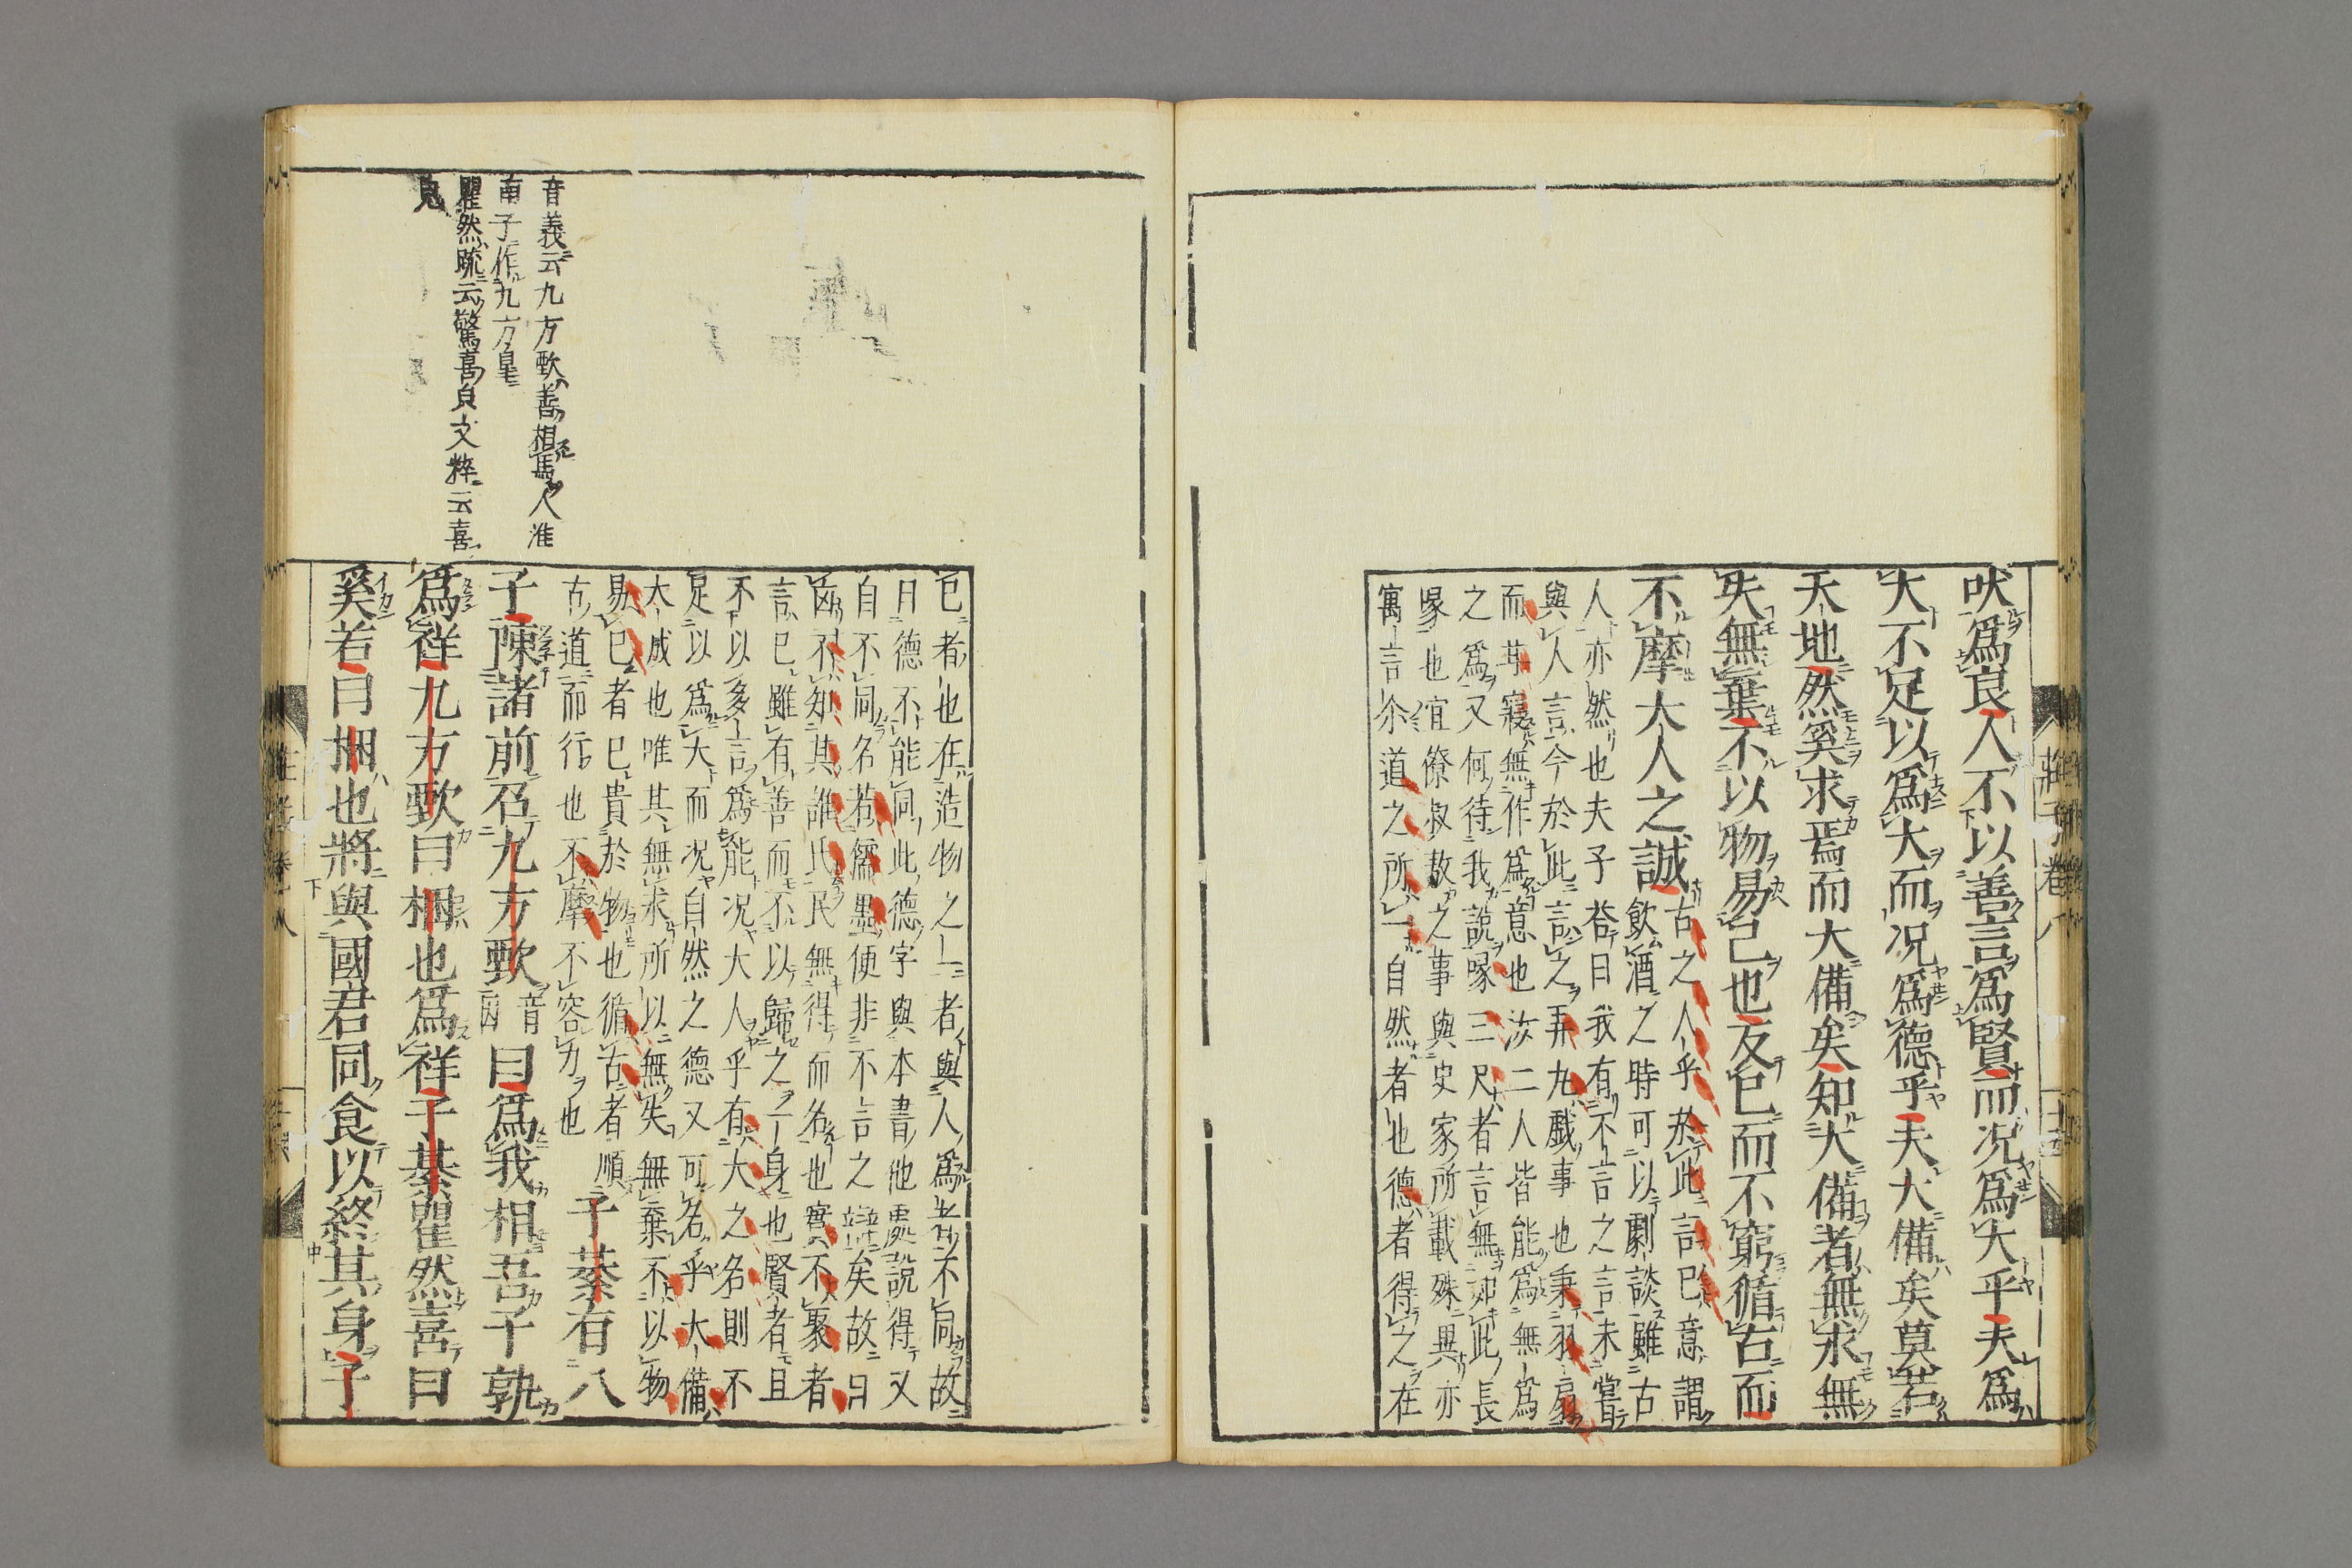 吠爲良人不以善言爲賢而况爲大乎夫爲
大不足以爲大而况爲德乎夫大備矣莫若
天地然奚求焉而大備矣知大備者無求無
失無棄不以物易己也反己而不窮循古而
不摩大人之誠古之人乎於此言已意謂
飲酒之時可以劇談雖古
人亦然也夫子荅曰我有不言之言未嘗
與人言今於此言之弄九戯事也秉羽扇
而甘寢無作爲意也汝二人皆能爲無爲
之爲又何待我說喙三尺者言無如此長
喙也宜僚叔敖之事與史家所載殊異亦
寓言尒道之所一自然者也德者得之在
莊子卷八
己者也在造物之一者與人爲者不同故
曰德不能同此德字與本書他處說得又
自不同名若儒墨便非不言之
矣故曰
凶不知其誰氏民無得而名也實不聚者
言已雖有善而不以歸之一身也賢者且
不以多言爲能况大人乎有大之名則不
足以爲大而况自然之德又可名乎大備
大成也唯其無求所以無失無棄不以物
易己者已貴於物也循古者順
古道而行也不摩不容力也
子綦有八
子陳諸前召九方歅音因曰爲我相吾子孰
爲祥九方歅曰梱也爲祥子綦瞿然喜曰
奚若曰梱也將與國君同食以終其身子
音義云九方歅善相馬人淮
南子作九方皐
瞿然疏云驚喜貞文粹云喜
皃